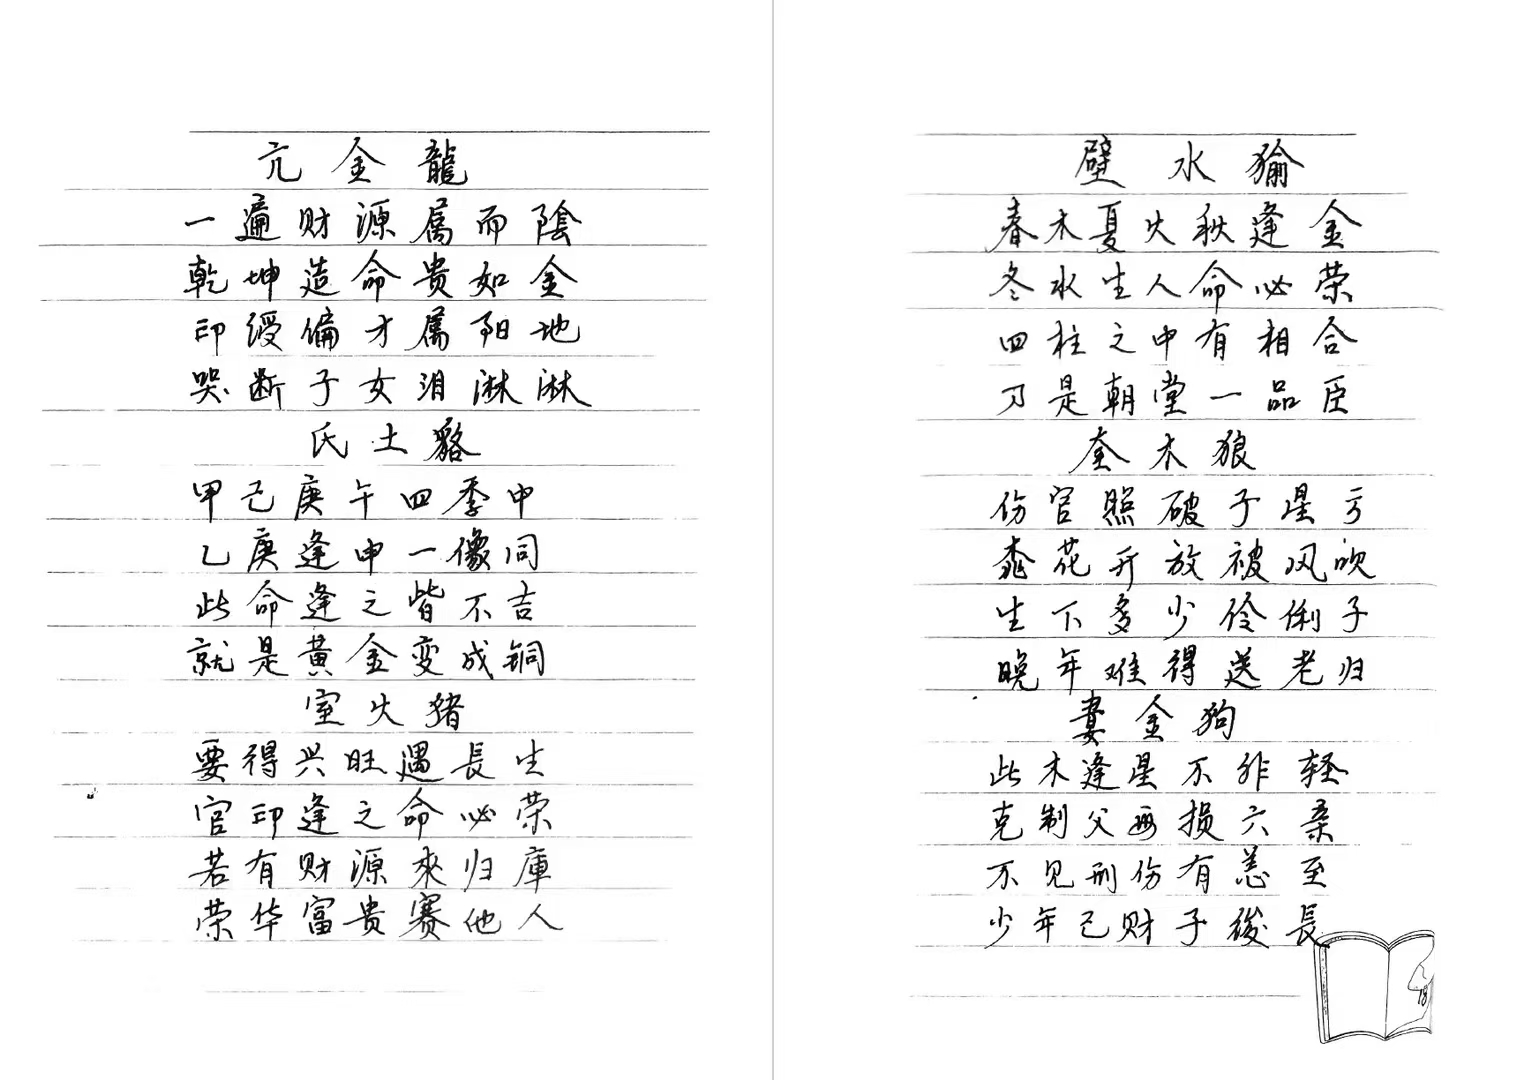 亢金龍
一遍财源属而陰
乾坤造命贵如金
印绶偏才属阳地
哭断子女泪淋淋
氐土貉
甲己庚午四季中
乙庚逢申一像同
此命逢之皆不吉
就是黄金变成铜
室火猪
要得兴旺遇長生
官印逢之命必荣
若有财源來归庫
荣华富贵赛他人
壁水㺄
春木夏火秋逢金
冬水生人命必荣
四柱之中有相合
乃是朝堂一品臣
奎木狼
伤官照破子星亏
桃花开放被风吹
生下多少伶俐子
晚年难得送老归
娄金狗
此木逢星不非轻
克制父母损六亲
不见刑伤有恙至
少年己财子後長
18